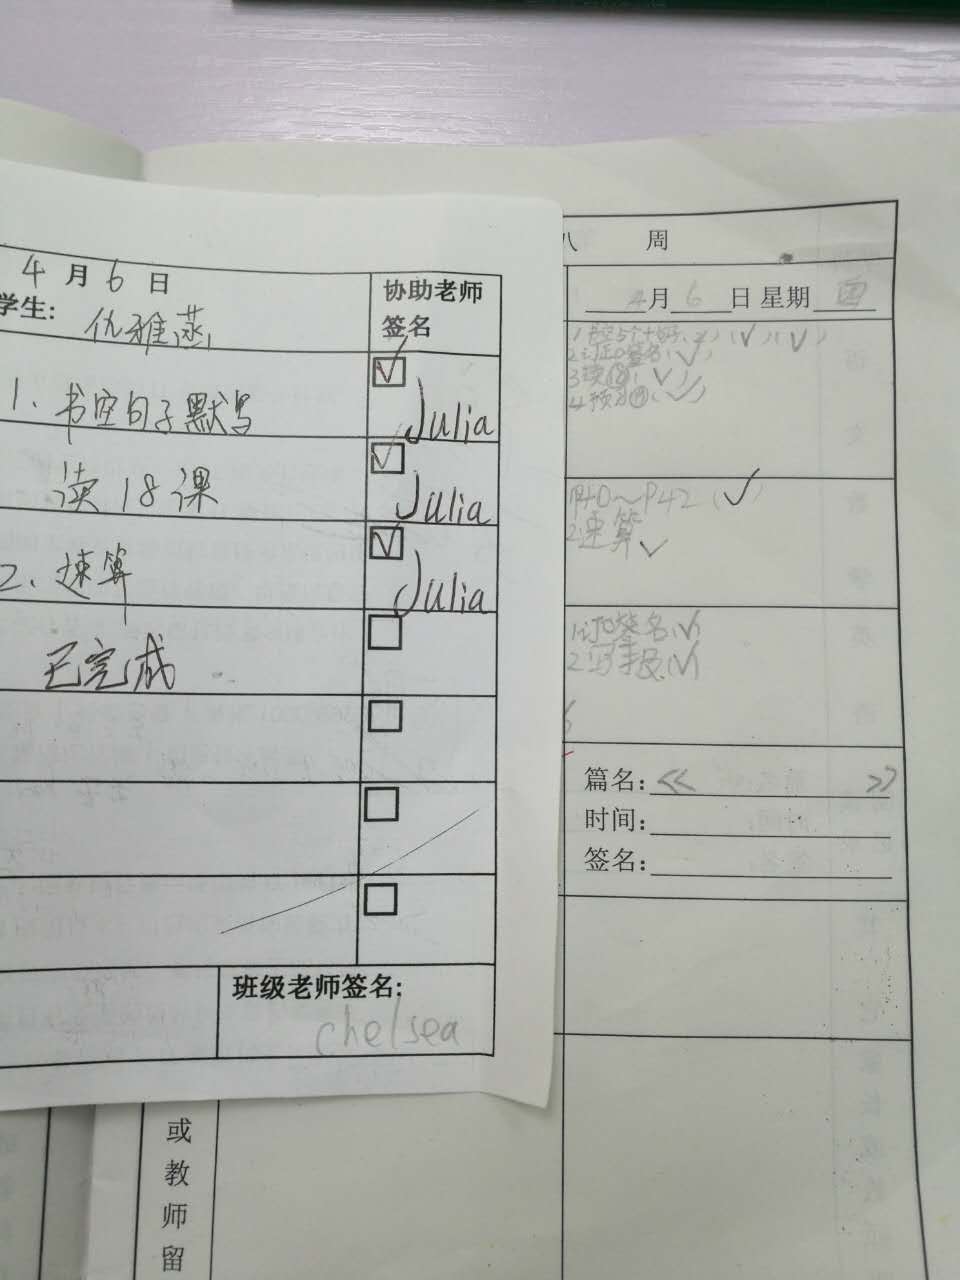 4月6日
学生:
协助老师
签名
1、书空句子默写
Julia
读18课
Julia
2、速算
Julia
已完成
班级老师签名:
chelsea
八 周
4月6日 星期四
2订正签名(✓)
3读⑱(✓)
4预习⑲(✓)
P40~P42(✓)
2速算✓
1订正签名(✓)
2写手报(✓)
篇名:《 》
时间:
签名:
或
教
师
留